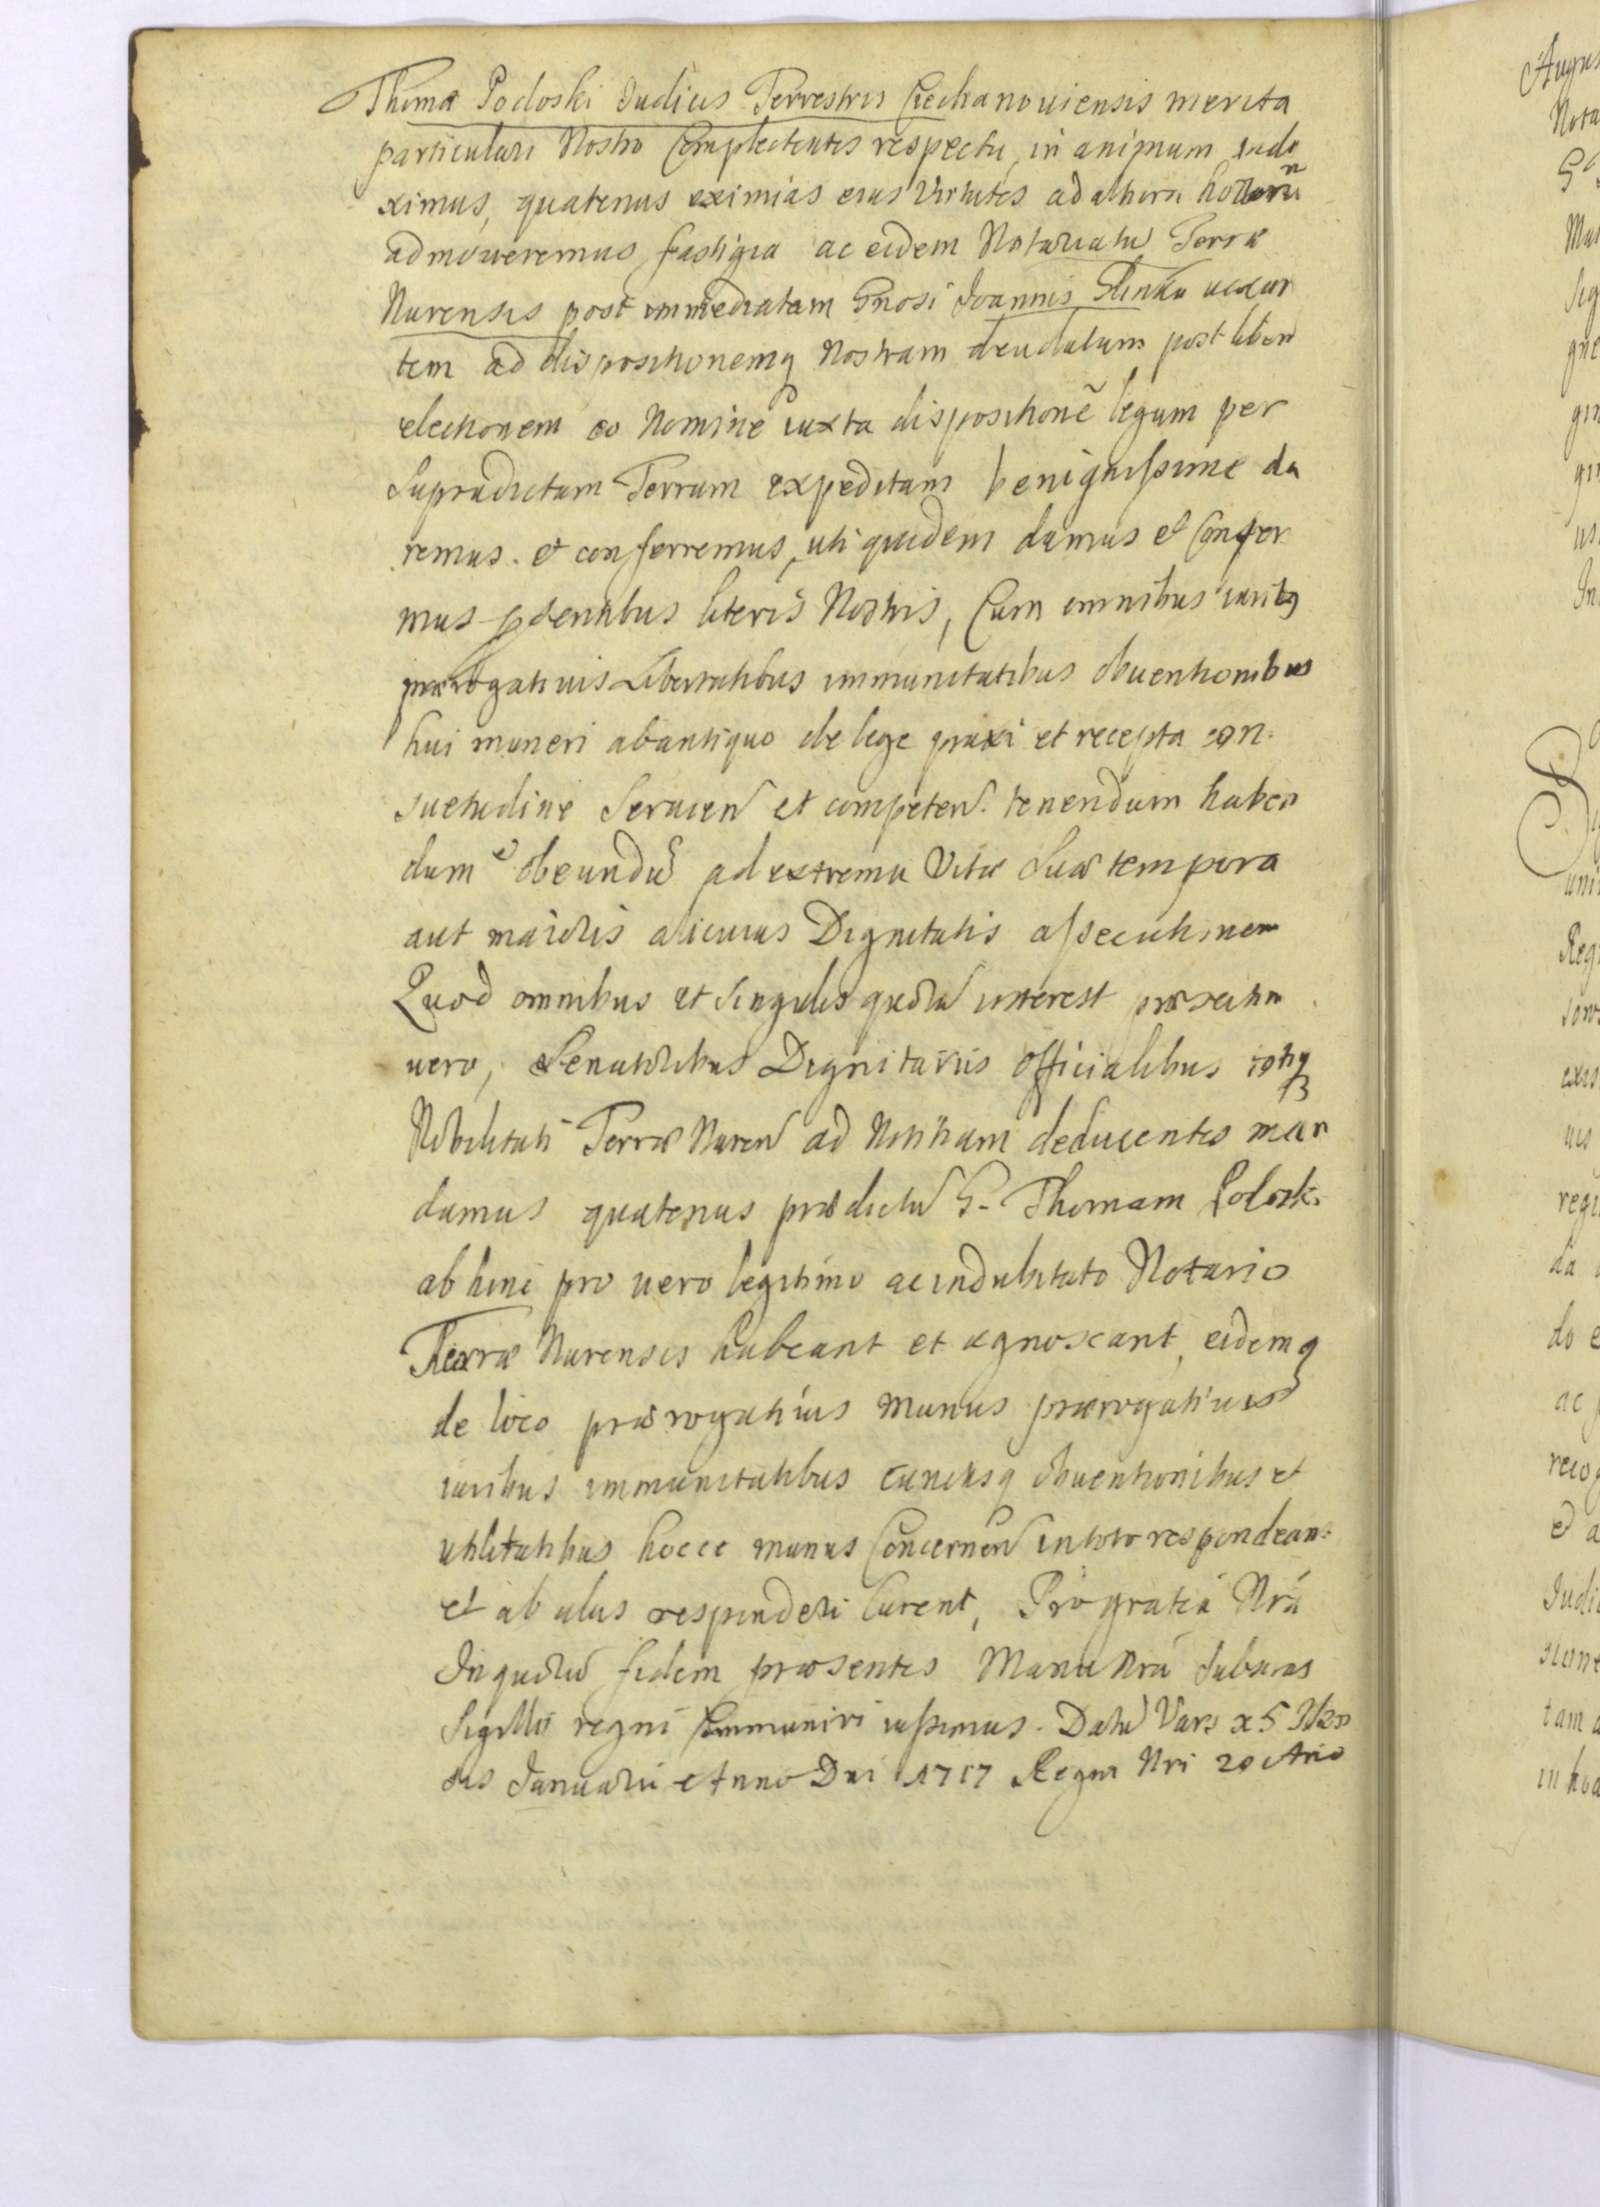 Thomæ Podoski Judicis Terrestris Ciechanouiensis merita
particulari Nostro Complectentes respectu, in animum indu
ximus, quatenus eximias eius Virtutes ad altiora honorũ
admoueremus fastigia ac eidem Notariatũ Terræ
Nurensis post immediatam Gnosi Joannis Glinka
tem ad dispositionemq Nostram deuolutum post liberã
electionem eo Nomine iuxta dispositionẽ legum per
Supradictam Terram expeditam benignissime da
remus. et conferremus, uti quidem damus et Confer
mus pñtibus literis Nostris, Cum omnibus iuribq
prærogatiuis Libertatibus immunitatibus obuentionibus
hui muneri abantiquo de lege praxi et recepta con.
suetudine Seruien et competen. tenendum haben
dum et obeundũ ad extrema Vitæ Suæ tempora
aut maioris alicuius Dignitatis assecutionem
Quod omnibus et Singulis quorũ interest præsertim
uero, Senatoribus Dignitariis Officialibus totiq
Nobilitati Terræ Nuren ad Notitiam deducentes man
damus quatenus prædictũ G. Thomam Podosk.
ab hinc pro uero legitimo ac indubitato Notario
Terræ Nurensis habeant et agnoscant, eidemq
de loco prærogatiuis munus prærogatiuis
iuribus immunitatibus cunctisq obuentionibus et
utilitatibus hocce munus Concernen in toto respondean.
et ab alus responderi Curent, Pro gratia Nrã
In quorũ fidem præsentes Manu Nrã Subscras
Sigillo regni Communiri iussimus. Datũ Vars x5
sis Januarii Anno Dni 1717 Regni Nri 20 Ano